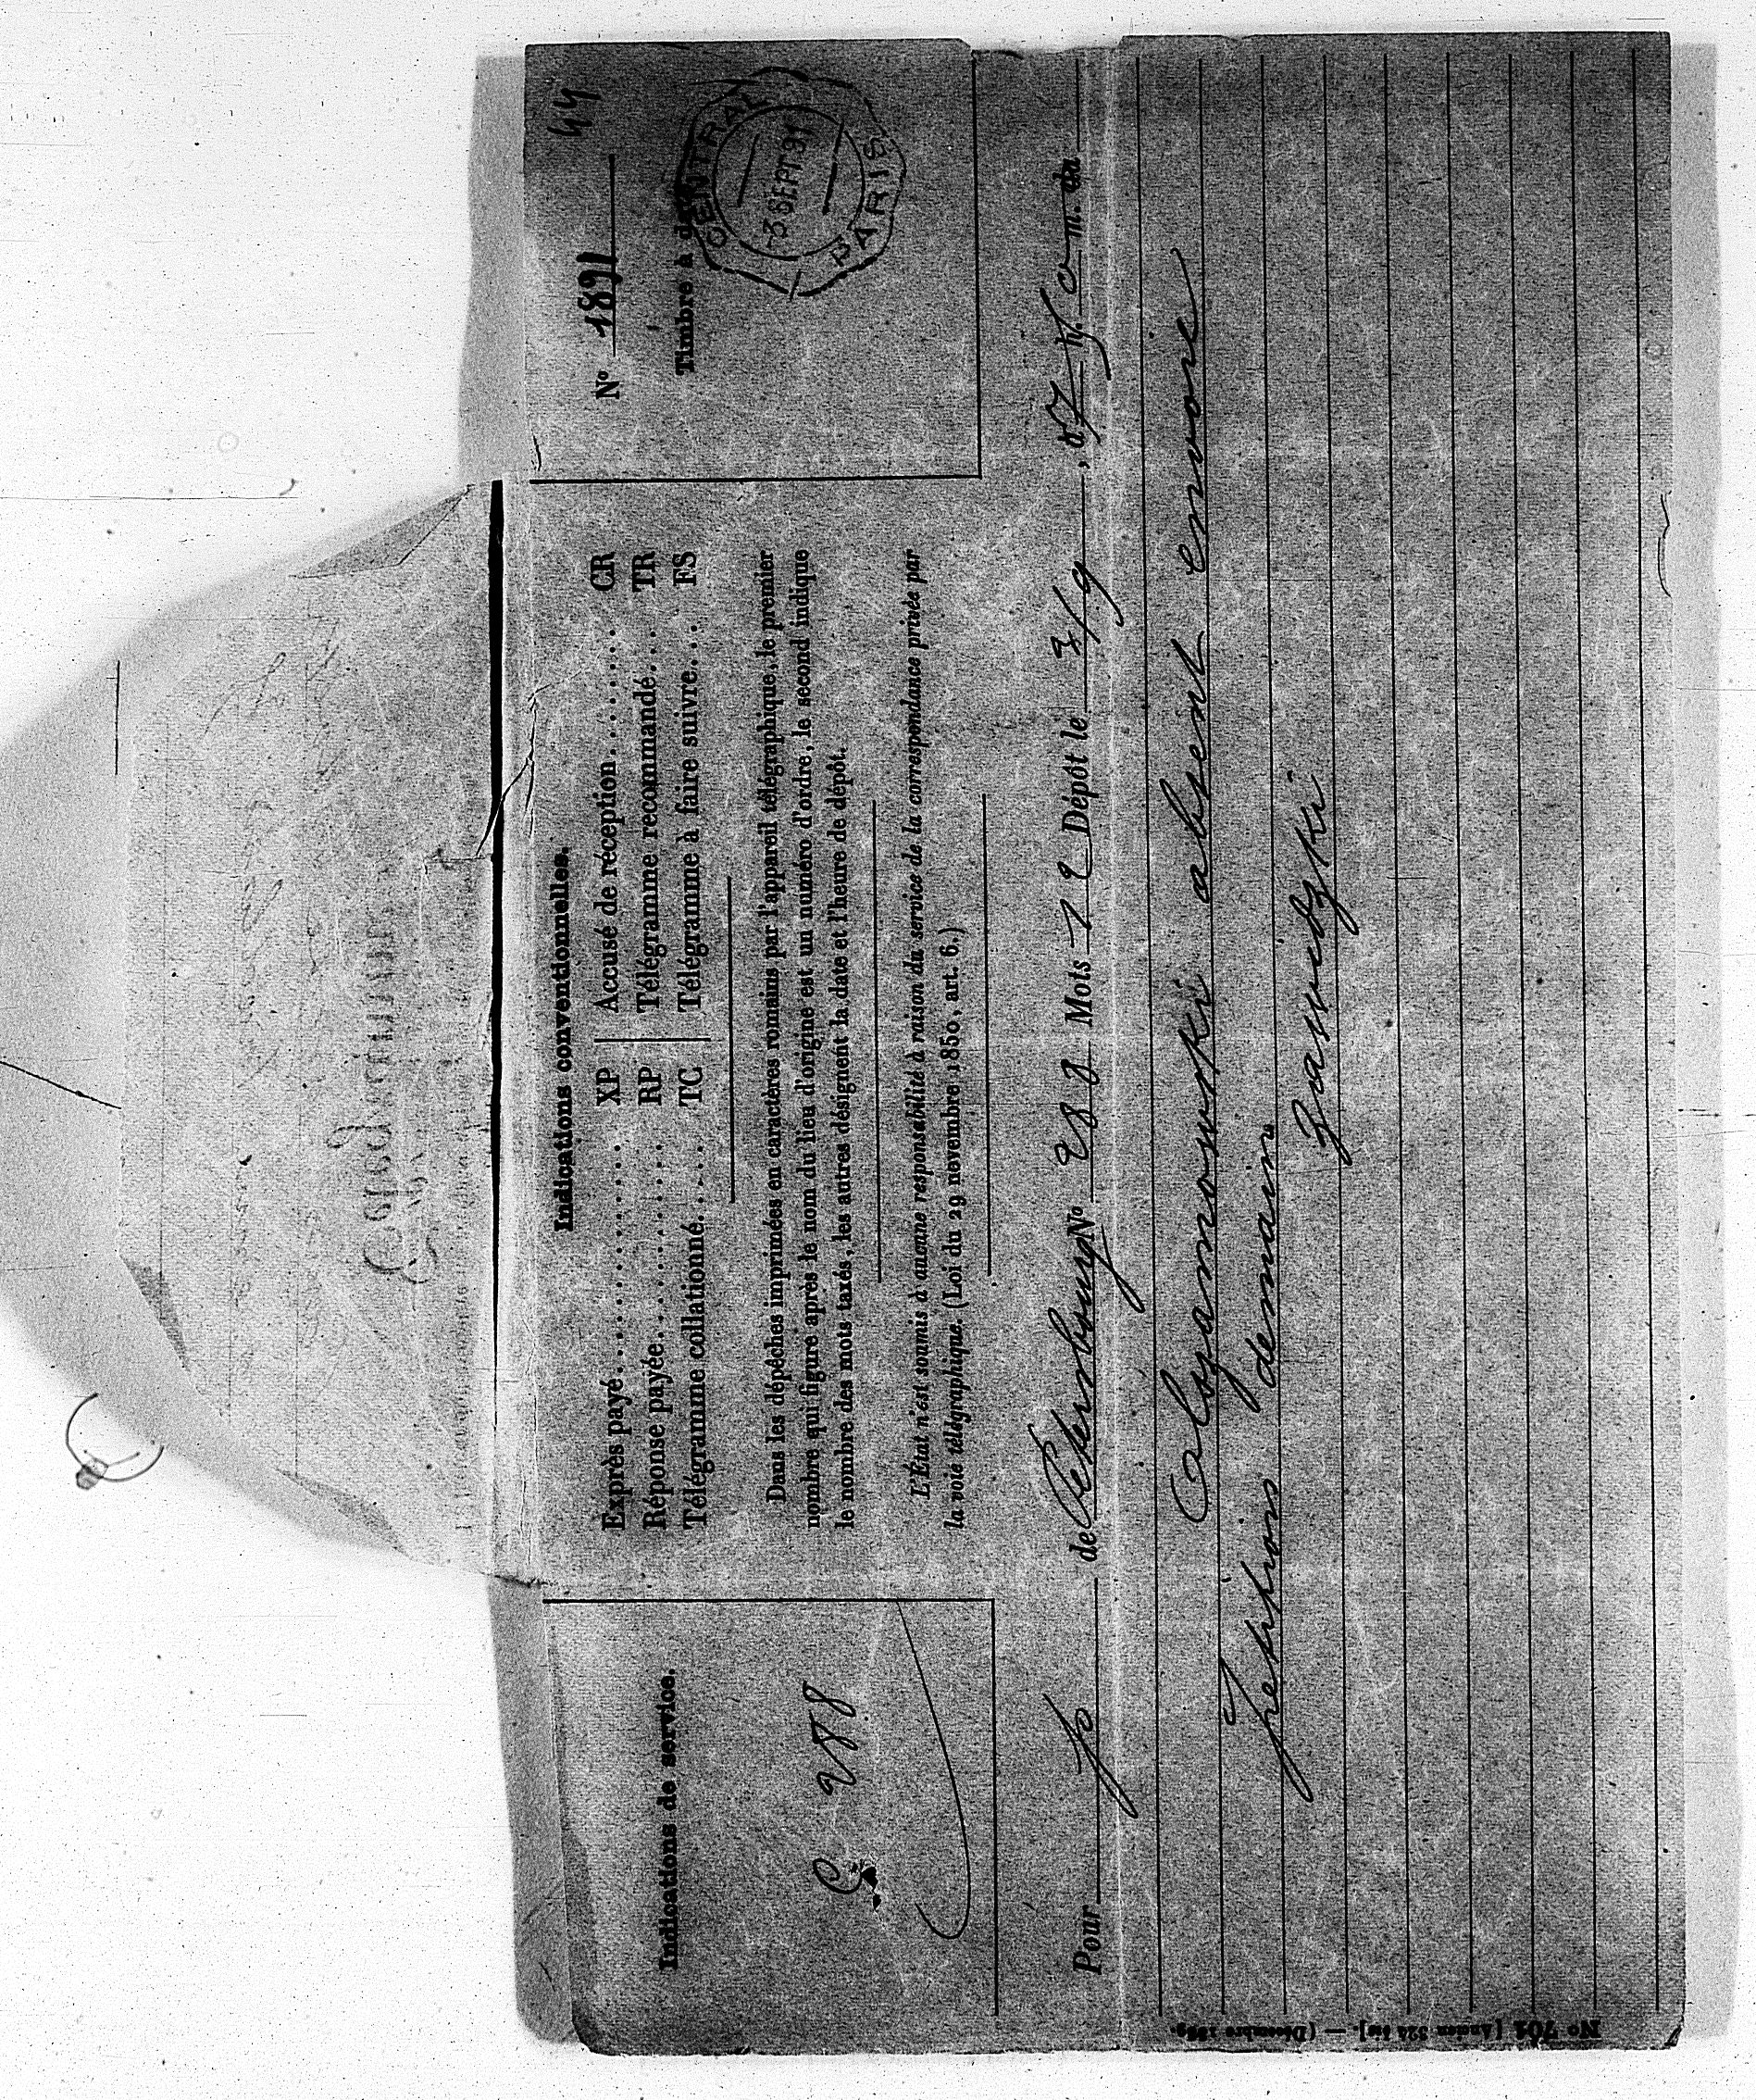 Indications de service.
C 288
Indications conventionnelles.
Exprès payé............... XP | Accusé de réception......... CR
Réponse payée............. RP | Télégramme recommandé... TR
Télégramme collationné...... TC | Télégramme à faire suivre... FS
Dans les dépêches imprimées en caractères romains par l'appareil télégraphique, le premier
nombre qui figure après le nom du lieu d'origine est un numéro d'ordre, le second indique
le nombre des mots taxés, les autres désignent la date et l'heure de dépôt.
L'État n'est soumis à aucune responsabilité à raison du service de la correspondance privée par
la voie télégraphique. (Loi du 29 novembre 1850, art. 6.)
44
N° 1891
Timbre à d
CENTRAL
3 SEPT 91
PARIS
Pour p de Petersbourg N° 288 Mots 12 Dépôt le 3/9, à 7 h m. du
absent envoie
demain
Zawadzki
N° 701 [Ancien 324 bis]. — (Décembre 1889.